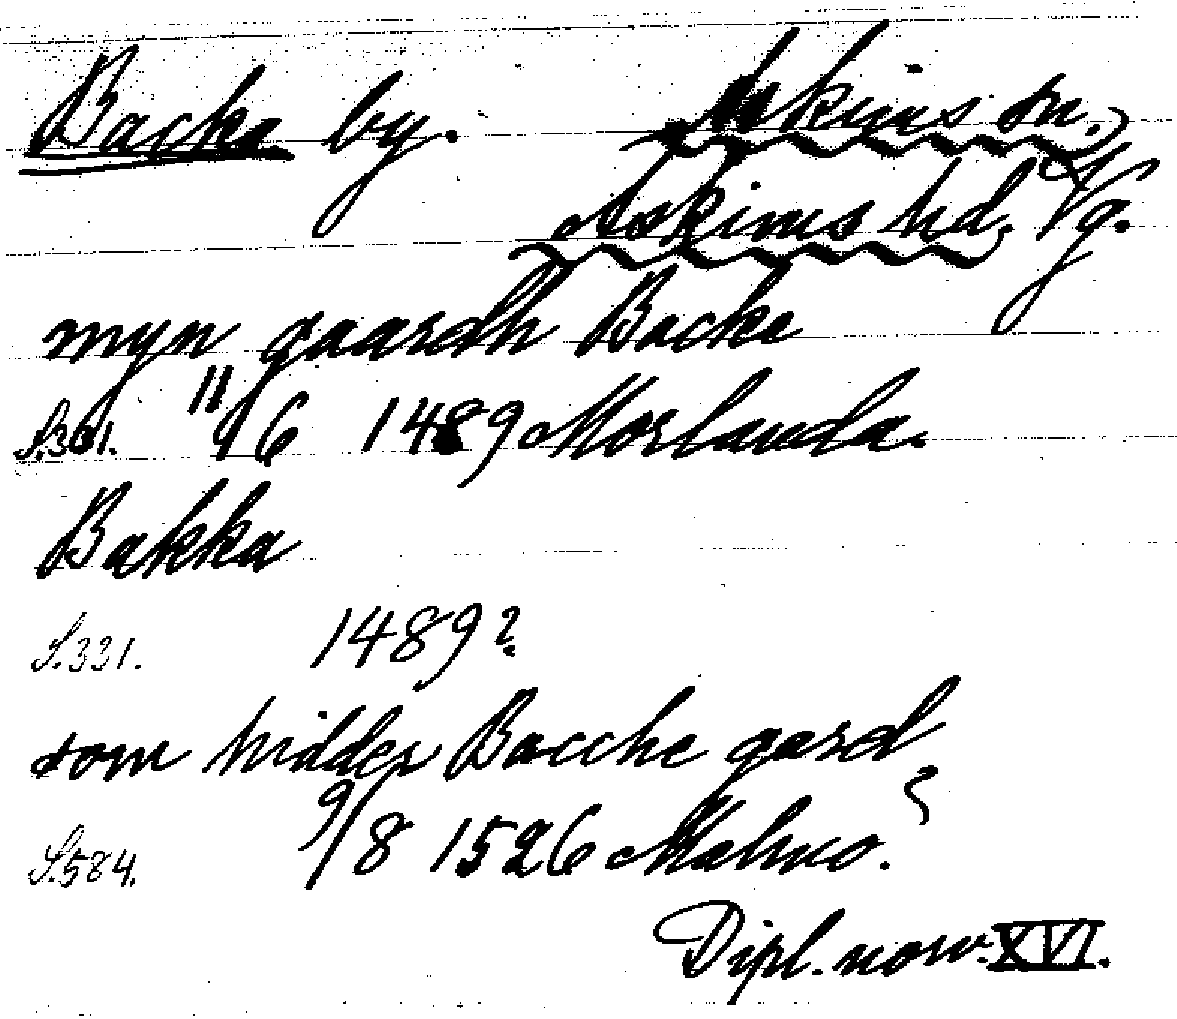 Backa by. Askims sn.,
Askims hd, Vg.
myn gaardh Backe
S.331. 11/6 1489 Morlanda.
Bakka
S.331. 1489?
som hidder Bacche gard
S.584. 9/8 1526 Malmo.
Dipl. norv. XVI.